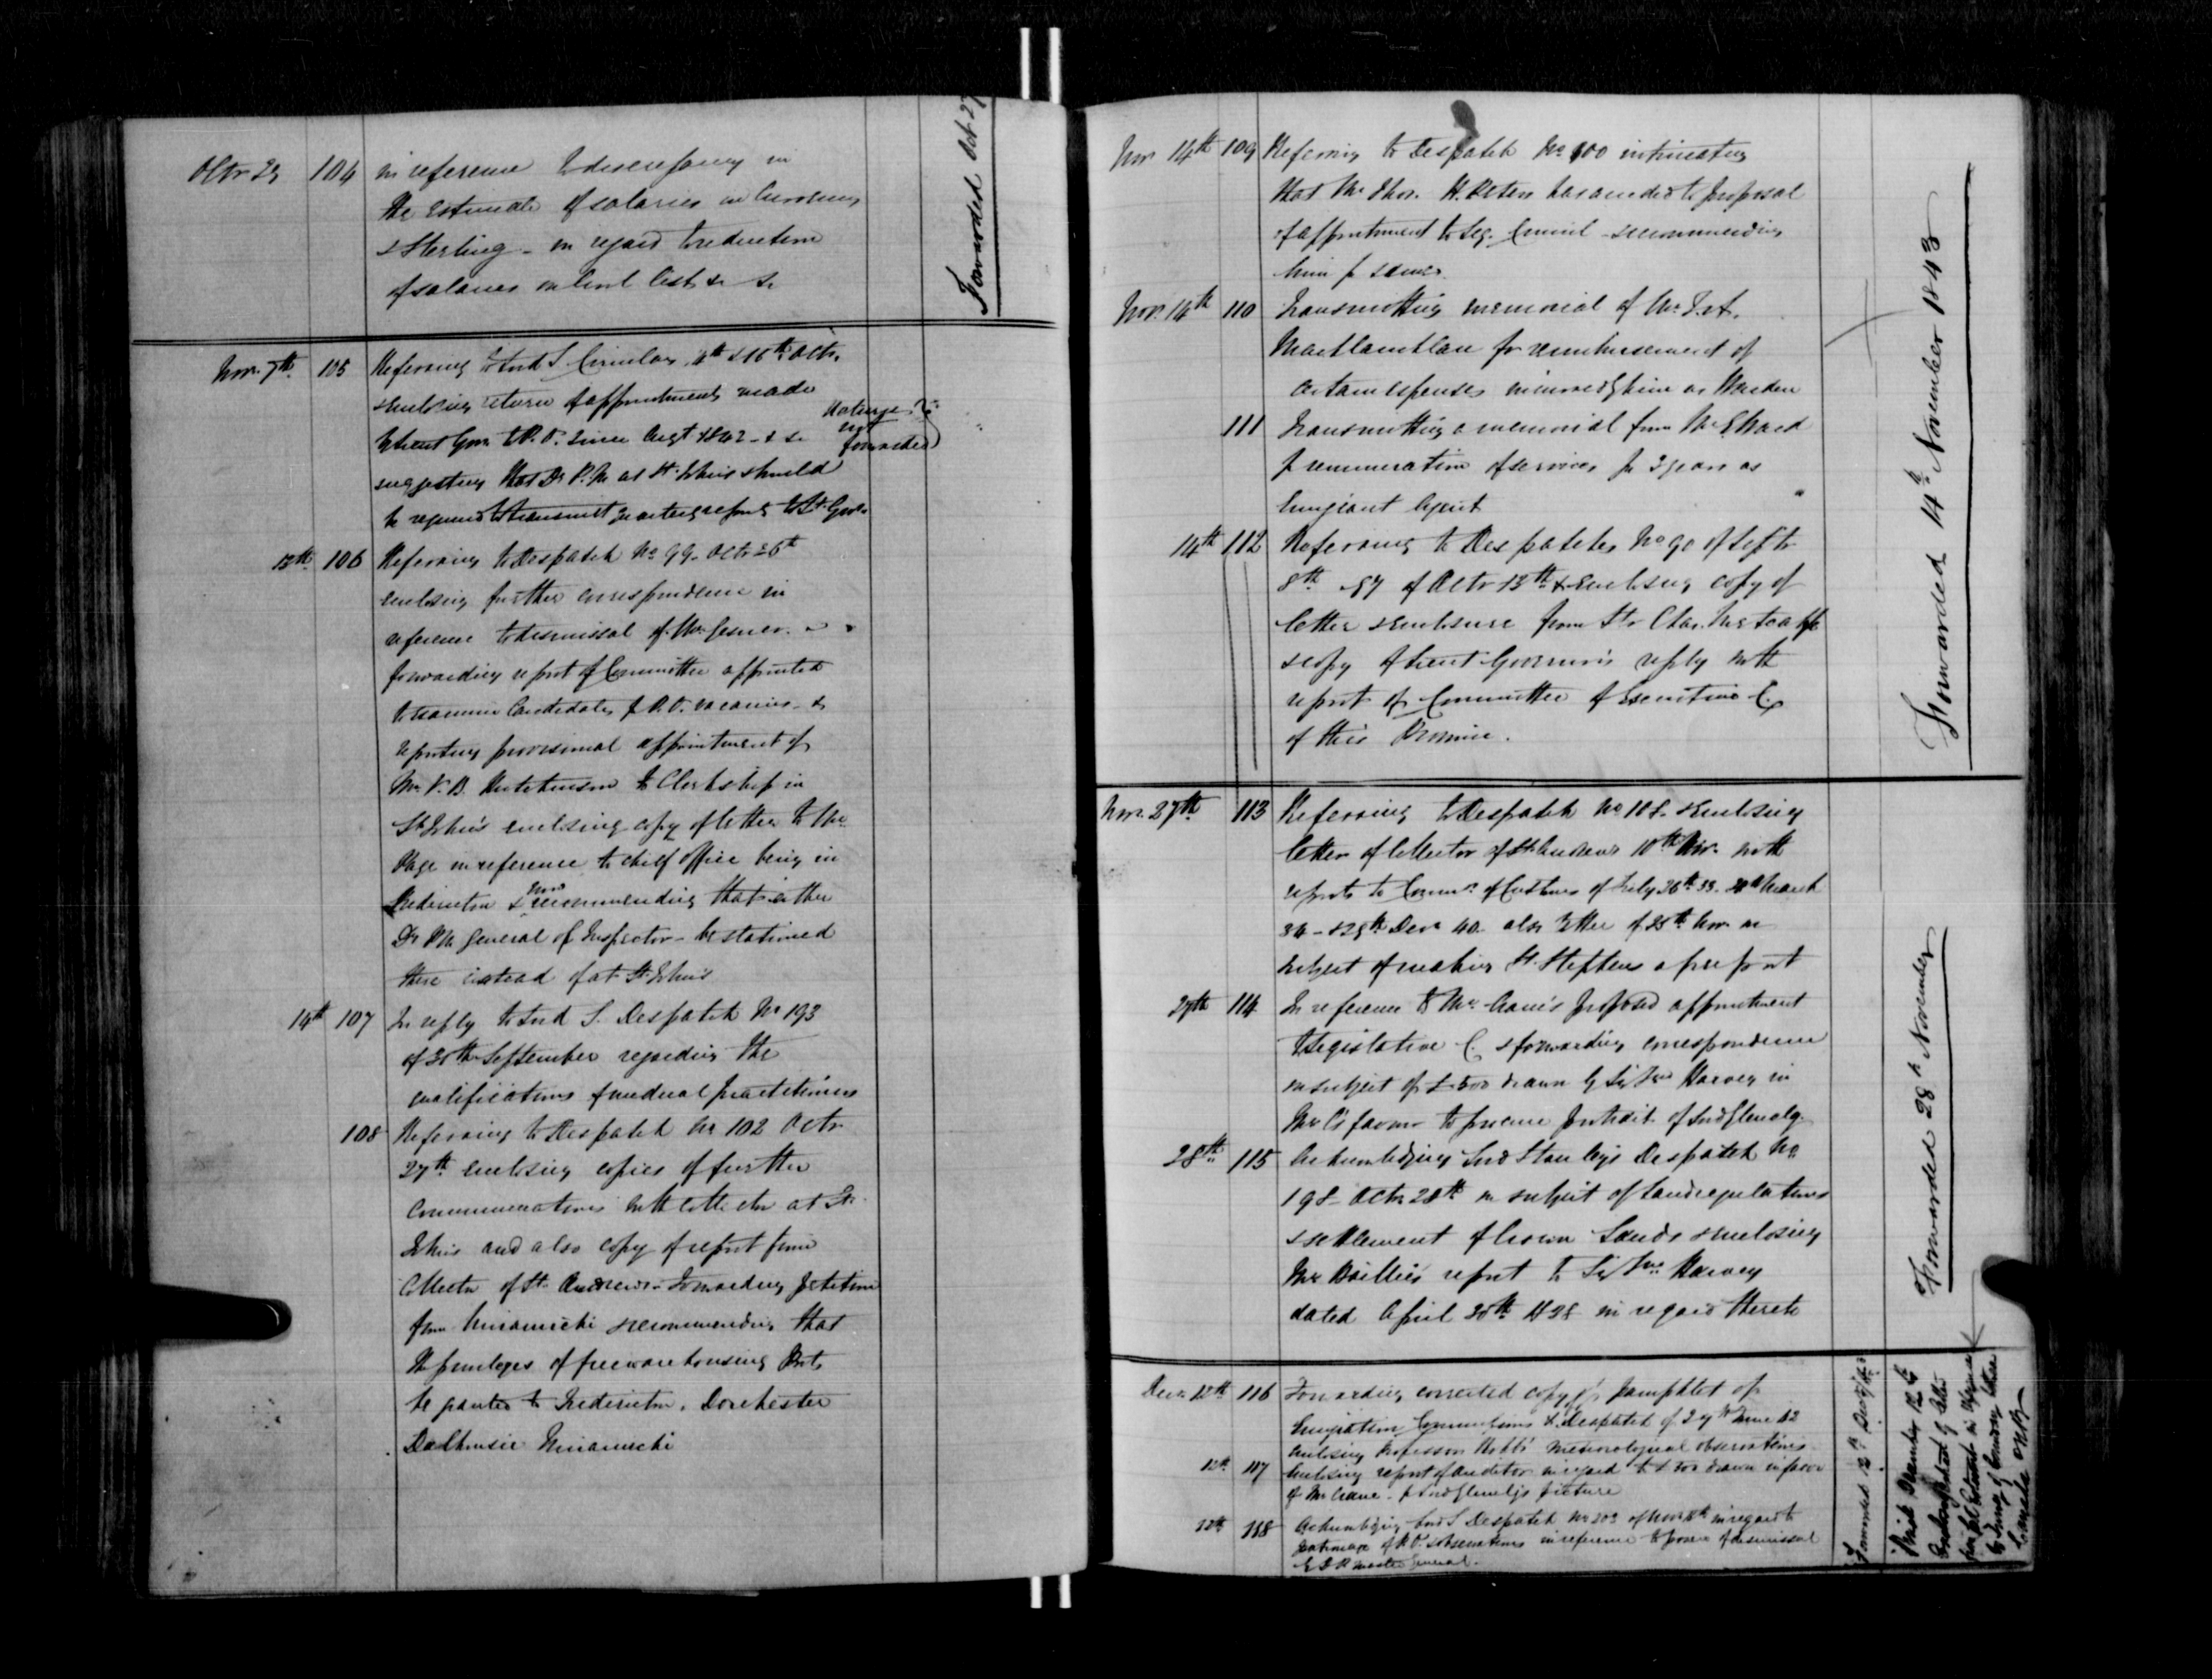 Octr 29 104 in reference to discrepancy in
the Estimate of salaries in Currency
& Sterling - in regard to reduction
of salaries on Civil List &c &c
Forwarded Oct 27
Novr. 7th 105 Referring to Lord S. Circulars 4th & 16th Octr.
& enclosing return of appointments made
by Lieut Govr. to P.O. since Augt 1842 - & c
Returns not forwarded
suggesting that Dy P.M. at St. John's should
be required to transmit quarterly reports to Lt. Govr.
13th 106 Referring to Despatch No 99. Octr 26th
enclosing further correspondence in
reference to dismissal of Mr. Gesner.
forwarding report of Committee appointed
to examine Candidates for P.O. vacancies - &
reporting provisional appointment of
Mr. Hutchinson to Clerkship in
St. John's enclosing copy of letter to Mr.
Page in reference to chief office being in
Fredericton & recommending that either
Dy P.M. General or Inspector - be stationed
there instead of at St. John's
14th 107 In reply to Lord S. Despatch No 193
of 30th September regarding the
qualifications of medical practitioners
108 Referring to Despatch No 102 Octr
27th enclosing copies of further
Communications with Collector at St.
John's and also copy of report from
Collector of St. Andrews - Forwarding petition
from Miramichi & recommending that
the privileges of free warehousing Ports
be granted to Fredericton, Dorchester
Dalhousie Miramichi
Nov 14th 109 Referring to Despatch No 100 intimating
that Mr. Thos. H. Peters has acceded to proposal
of appointment to Leg. Council - & recommending
him for same.
Nov. 14th 110 Transmitting memorial of Mr. J. A.
Maclauchlan for reimbursement of
certain expenses incurred by him as Warden
111 Transmitting a memorial from Mr. Ward
for remuneration of services for 3 years as
Emigrant Agent
14th 112 Referring to Despatches No 90 of Septr
8th & 97 of Octr 13th & enclosing copy of
letter & enclosure from Sir Chas. Metcalfe
& copy of Lieut Governor's reply with
report of Committee of Executive C.
of this Province.
Forwarded 14th November 1843
Nov. 27th 113 Referring to Despatch No 108. & enclosing
letter of Collector of St. Andrews 10th Nov. with
reports to Commrs of Customs of July 26th 33. March
34 - & 29th Decr 40. also letter of 25th Nov. on
subject of making St. Stephens a free port
27th 114 In reference to Mr. Crane's proposed appointment
to Legislative C. & forwarding correspondence
on subject of £500 drawn by Sir Jno Harvey in
Mr C's favour to procure portrait of Lord Glenelg.
28th 115 Acknowledging Lord Stanley's Despatch No
198 Octr 28th on subject of Land regulations
& settlement of Crown Lands & enclosing
Mr Baillie's report to Sir Jno. Harvey
dated April 30th 1838 in regard thereto
Forwarded 28th November
Decr 12th 116 Forwarding corrected copy of pamphlet of
Emigration Commissions & Despatch of 27th June 42
enclosing Professor Robb's meteorological observations
12th 117 Enclosing report of Auditor in regard to £500 drawn in favor
of Mr Crane - for Lord Glenelg's picture
12th 118 Acknowledging Lord S Despatch No 202 of Nov 8th in regard to
patronage of P.O. & observations in reference to power of dismissal
by D P master General.
Forwarded 12th Decr /43